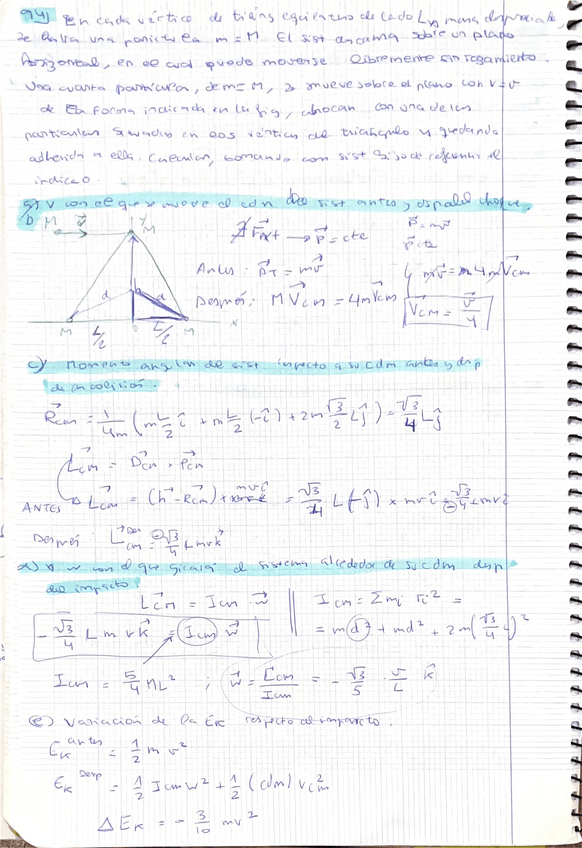 94) En cada vértice de triáng equilátero de lado L, y masa despreciable,
se halla una partícula m = M. El sist descansa sobre un plano
horizontal, en el cual puede moverse libremente sin rozamiento.
Una cuarta partícula, de m = M, se mueve sobre el plano con v = v
de la forma indicada en la fig, chocan con una de las
partículas situadas en los vértices del triángulo y quedando
adherida a ella. Calcular, tomando como sist fijo de referencia el
indicado.
V con el que se mueve el cdm del sist antes y desp del choque.
M v⃗ y M
∄ F⃗ext → P⃗ = cte
P⃗ = mv⃗
P⃗ cte
Antes: P⃗T = mv⃗
mv⃗ = 4m V⃗cm
Después: M V⃗cm = 4m V⃗cm
V⃗cm = v⃗/4
d d
M L/2 0 L/2 M x
c) Momento angular del sist respecto a su cdm antes y desp
de la colisión.
R⃗cm = 1/4m (m L/2 î + m L/2 (-î) + 2m √3/2 L ĵ) = √3/4 L ĵ
L⃗cm = D⃗cm × P⃗cm
ANTES L⃗cm = (h⃗ - R⃗cm) × mvî = √3/4 L(-ĵ) × mvî = -√3/4 Lmvî
Después: L⃗cm Des = -√3/4 Lmvk⃗
d) w con el que girará el sistema alrededor de su cdm desp
del impacto.
L⃗cm = Icm · w⃗
Icm = Σmi ri² =
-√3/4 L m v k⃗ = Icm w⃗
= md² + md² + 2m(√3/4 L)²
Icm = 5/4 ML² ; w⃗ = L⃗cm/Icm = -√3/5 · v/L k⃗
e) Variación de la Ek respecto al impacto.
Ek antes = 1/2 m v²
Ek Desp = 1/2 Icm w² + 1/2 (4m) vcm²
ΔEk = - 3/10 mv²